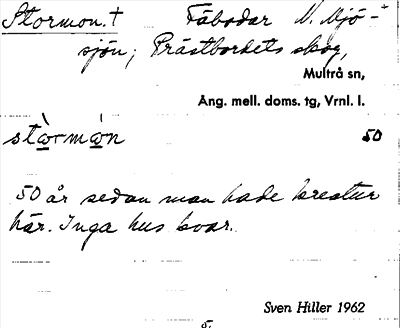 Stormon. † Fäbodar N. Mjö-
sjön; Prästbordets skog,
Multrå sn,
Ång. mell. doms. tg, Vrnl. l.
stòrmòn 50
50 år sedan man hade kreatur
här. Inga hus kvar.
Sven Hiller 1962